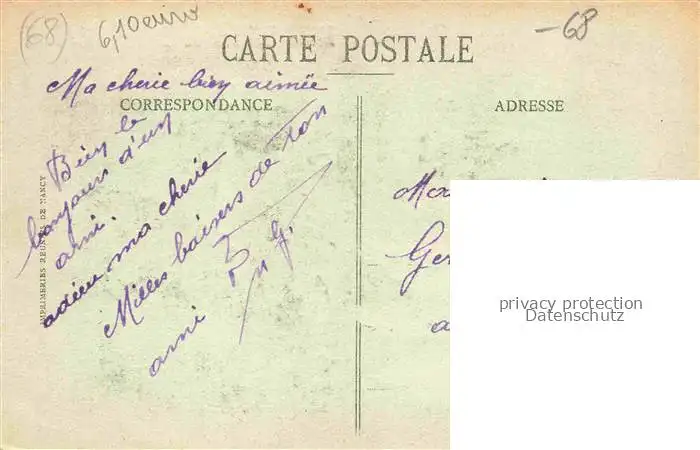 (68)
6,10 euro
-68
CARTE POSTALE
Ma cherie bien aimée
CORRESPONDANCE
ADRESSE
Bien le
bonjours d'un
ami.
adieu ma cherie
Milles baisers de Ton
ami
IMPRIMERIES REUNIES DE NANCY
Ger
a
privacy protection
Datenschutz